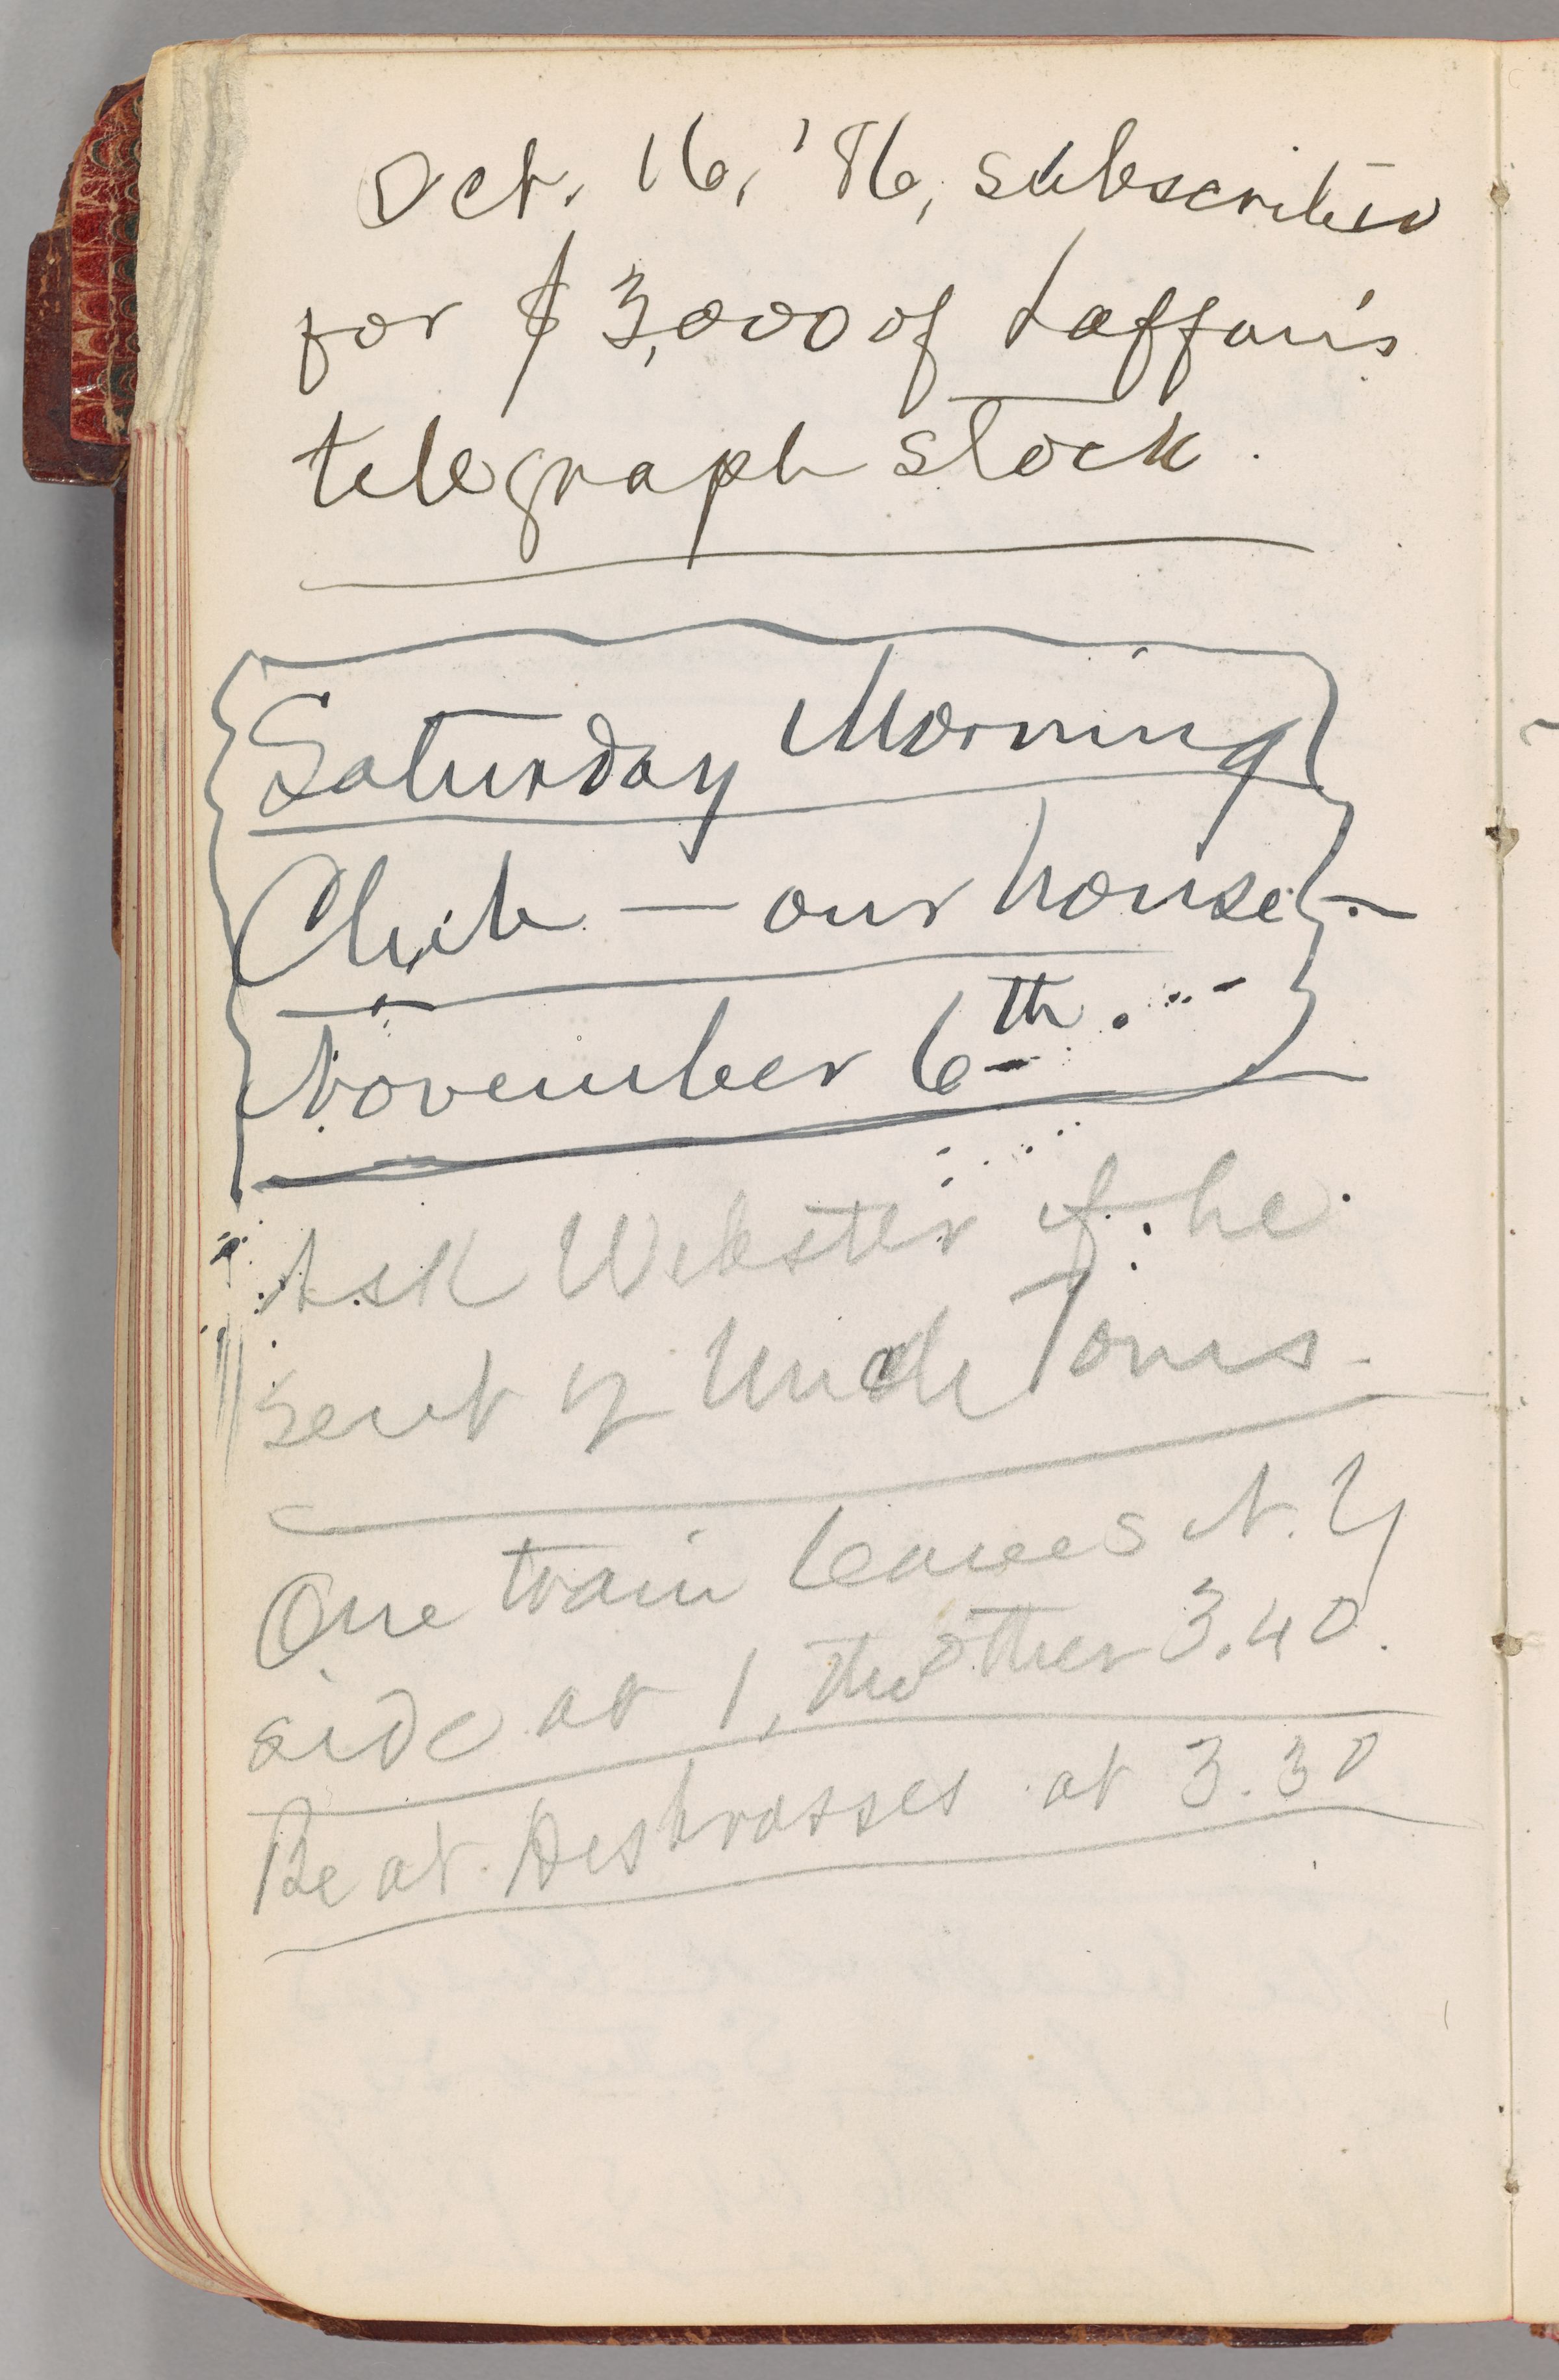 Oct. 16, '86, subscribed
for $3,000 of Laffan's
telegraph stock.
Saturday Morning
Club — our house —
November 6th.
Ask Webster if he
sent 2 Uncle Toms.
One train leaves N. Y
side at 1, the other 3.40.
Be at Desbrosses at 3.30